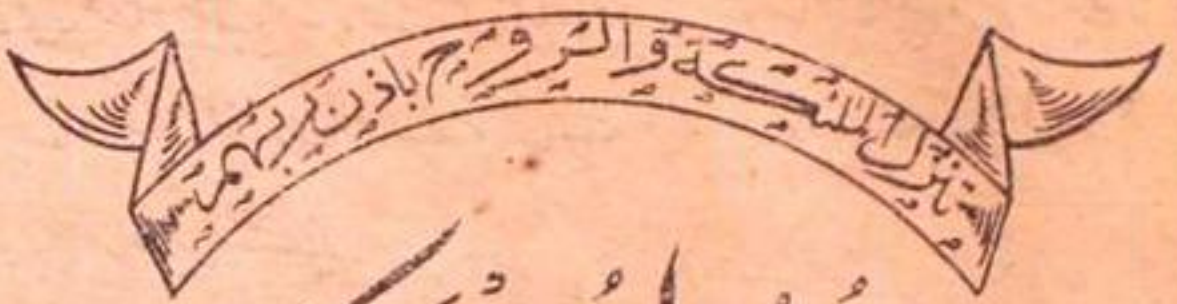 تنزل الملئكة والروح باذن ربهم